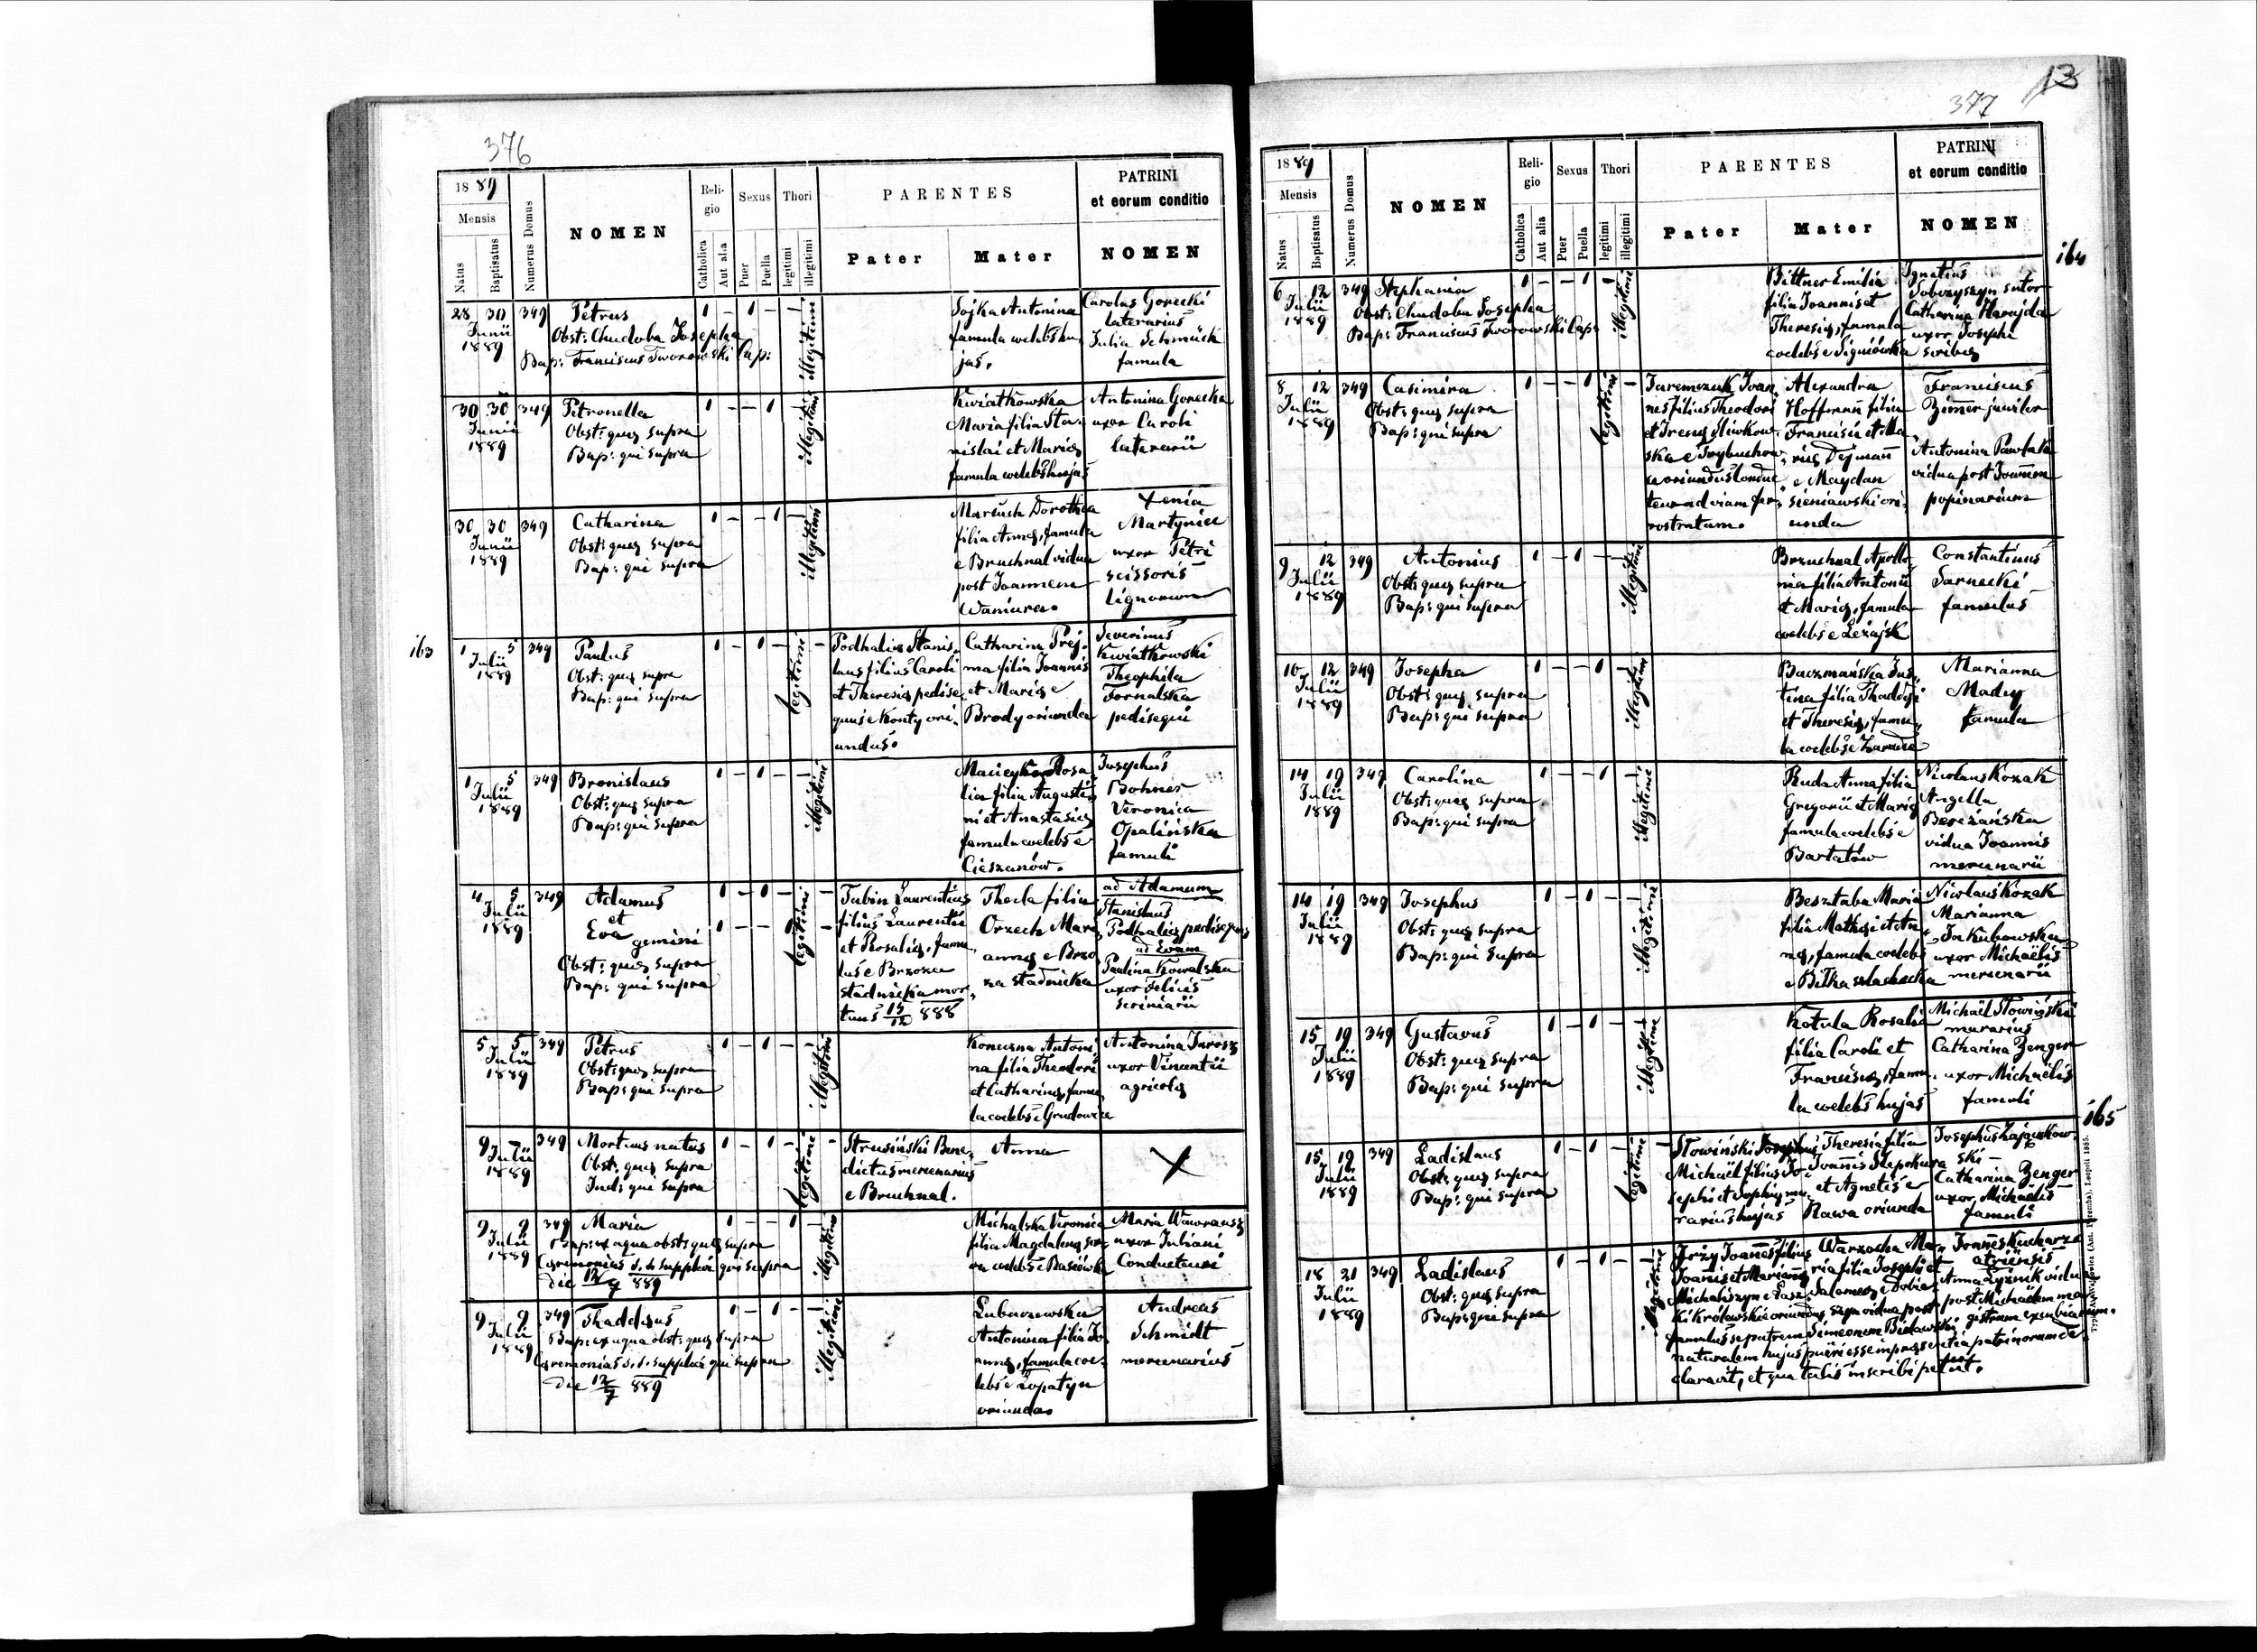 376
18 89
Mensis
Natus
Baptisatus
Numerus Domus
NOMEN
Reli-
gio
Catholica
Aut alia
Sexus
Puer
Puella
Thori
legitimi
illegitimi
PARENTES
Pater
Mater
PATRINI
et eorum conditio
NOMEN
28 30 349 Petrus
Junii
1889
Obst: Chudoba Josepha
Bap: Franciscus Tworowski Cap:
1 – 1 – – 1
illegitimi
Sojka Antonina
famula coelebs hu
jas.
Carolus Gorecki
laterarius
Julia Schmück
famula
30 30 349 Petronella
Junii
1889
Obst: quæ supra
Bap: qui supra
1 – – 1 – 1
illegitimi
Kwiatkowska
Maria filia Sta-
nislai et Mariæ
famula coelebs hujas
Antonina Gorecka
uxor Caroli
laterarii
30 30 349 Catharina
Junii
1889
Obst: quæ supra
Bap: qui supra
1 – – 1 – 1
illegitimi
Dorothea
filia Annæ, famula
e Bruchnal vidua
post Joannem
Waniura.
Xenia
Martyniec
uxor Petri
scissoris
lignorum
163
1 5 349 Paulus
Julii
1889
Obst: quæ supra
Bap: qui supra
1 – 1 – 1 –
legitimi
Podhalicz Stanis-
laus filius Caroli
et Theresiæ pedise-
quus e Konty ori-
undus.
Catharina Prej-
ma filia Joannis
et Mariæ e
Brody oriunda
Severinus
Kwiatkowski
Theophila
Fornalska
pedisequi
1 5 349 Bronislaus
Julii
1889
Obst: quæ supra
Bap: qui supra
1 – 1 – – 1
illegitimi
Rosa
lia filia Augusti-
ni et Anastasiæ
famula coelebs e
Cieszanów.
Josephus
Bohner
Veronica
Opalińska
famuli
4 5 349 Adamus
Julii
1889
et
Eva
gemini
Obst: quæ supra
Bap: qui supra
1 – 1 – 1 –
1 – – 1 1 –
legitimi
Tabin Laurentius
filius Laurentii
et Rosaliæ, famu
lus e Brzoza
stadnicka mor-
tuus 15/12 888
Thecla filia
Orzech Mari
annæ e Brzo
za stadnicka
ad Adamum
Stanislaus
Podhalicz pedisequus
ad Evam
Paulina Kowalska
uxor Felicis
scriniarii
5 5 349 Petrus
Julii
1889
Obst: quæ supra
Bap: qui supra
1 – 1 – – 1
illegitimi
Antoni
na filia Theodori
et Catharinæ, famu
la coelebs e
Antonina Jarosz
uxor Vincentii
agricolæ
9 Julii 349 Mortuus natus
1889
Obst: quæ supra
Ind: qui supra
1 – 1 – 1 –
legitimi
Strusiński Bene-
dictus mercenarius
e Bruchnal.
Anna
X
9 9 349 Maria
Julii
1889
Bap: ex aqua obst: quæ supra
Ceremonias s. b. supplevi qui supra
die 12/7 889
1 – – 1 – 1
illegitimi
Michalska Veronica
filia Magdalenæ
coelebs e Basiówka
Maria Wawrausz
uxor Juliani
Conductoris
9 9 349 Thaddæus
Julii
1889
Bap: ex aqua obst: quæ supra
Ceremonias s. b. supplevi qui supra
die 12/7 889
1 – 1 – – 1
illegitimi
Lubaczewska
Antonina filia Jo
annæ, famula coe-
lebs e Łopatyn
oriunda.
Andreas
Schmidt
mercenarius
377
13
18 89
Mensis
Natus
Baptisatus
Numerus Domus
NOMEN
Reli-
gio
Catholica
Aut alia
Sexus
Puer
Puella
Thori
legitimi
illegitimi
PARENTES
Pater
Mater
PATRINI
et eorum conditio
NOMEN
164
6 12 349 Stephania
Julii
1889
Obst: Chudoba Josepha
Bap: Franciscus Tworowski Cap:
1 – – 1 – 1
illegitimi
Bittner Emilia
filia Joannis et
Theresiæ, famula
coelebs e Signiówka
Ignatius
Sobczyszyn sutor
Catharina Harajda
uxor Josephi
scribæ
8 12 349 Casimira
Julii
1889
Obst: quæ supra
Bap: qui supra
1 – – 1 1 –
legitimi
Jaremczuk Joan
nes filius Theodori
et Irenæ Sliwkow-
ska e Trybuchow-
ce oriundus conduc
teur ad viam fer-
rostratam.
Alexandra
Hoffmann filia
Francisci et Ma
riæ Dejmann
e Maydan
sieniawski ori-
unda
Franciscus
Zimmer juvilar
Antonina Pawlak
vidua post Joannem
popinarium
9 12 349 Antonius
Julii
1889
Obst: quæ supra
Bap: qui supra
1 – 1 – – 1
illegitimi
Bruchnal Apollo-
nia filia Antonii
et Mariæ, famula
coelebs e Leżajsk
Constantinus
Sarnecki
famulus
10 12 349 Josepha
Julii
1889
Obst: quæ supra
Bap: qui supra
1 – – 1 – 1
illegitimi
Baczmańska Jus-
tina filia Thadæi
et Theresiæ, famu-
la coelebs e
Marianna
Madey
famula
14 19 349 Carolina
Julii
1889
Obst: quæ supra
Bap: qui supra
1 – – 1 – 1
illegitimi
Ruda Anna filia
Gregorii et Mariæ
famula coelebs e
Bartatów
Nicolaus Kozak
Angella
Bereżańska
vidua Joannis
mercenarii
14 19 349 Josephus
Julii
1889
Obst: quæ supra
Bap: qui supra
1 – 1 – – 1
illegitimi
Besztaba Maria
filia Mathæi et An-
næ, famula coelebs
e Biłka szlachecka
Nicolaus Kozak
Marianna
Jakubowska
uxor Michaelis
mercenarii
15 19 349 Gustavus
Julii
1889
Obst: quæ supra
Bap: qui supra
1 – 1 – – 1
illegitimi
Kotula Rosalia
filia Caroli et
Franciscæ, famu-
la coelebs hujas
Michaël Słowiński
murarius
Catharina Zenger
uxor Michaëlis
famuli
165
15 19 349 Ladislaus
Julii
1889
Obst: quæ supra
Bap: qui supra
1 – 1 – 1 –
legitimi
Słowiński
Michaël filius Jo-
sephi et Sophiæ mu-
rarius hujas
Theresia filia
Joannis Slepokura
et Agnetis e
Rawa oriunda
Josephus Zajączkow-
ski –
Catharina Zenger
uxor Michaelis
famuli
18 21 349 Ladislaus
Julii
1889
Obst: quæ supra
Bap: qui supra
1 – 1 – – 1
illegitimi
Jerzy Joannes filius
Joannis et Mariannæ
Michaliszyn e Łasz
ki Królewskie oriundus
famulus se patrem
naturalem hujus pueri esse in præsentia patrinorum de
claravit, et qua talis inscribi petiit.
Warzocha Ma-
ria filia Josephi et
Salomeæ e
vidua post
Simeonem Bielawski
Joannes Kucharz
atriensis
Anna Łyżnik vidua
post Michaëlem ma
gistrum excubiarum.